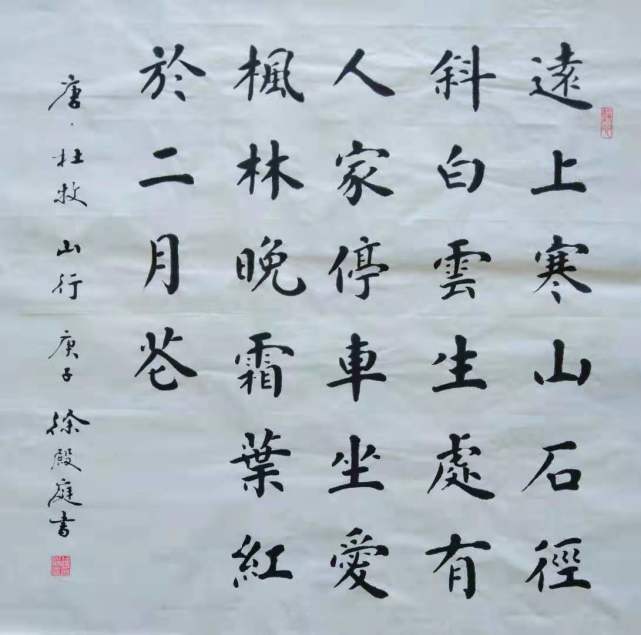 遠上寒山石徑
斜白雲生處有
人家停車坐愛
楓林晚霜葉紅
於二月花
唐·杜牧 山行 庚子 徐殿庭書